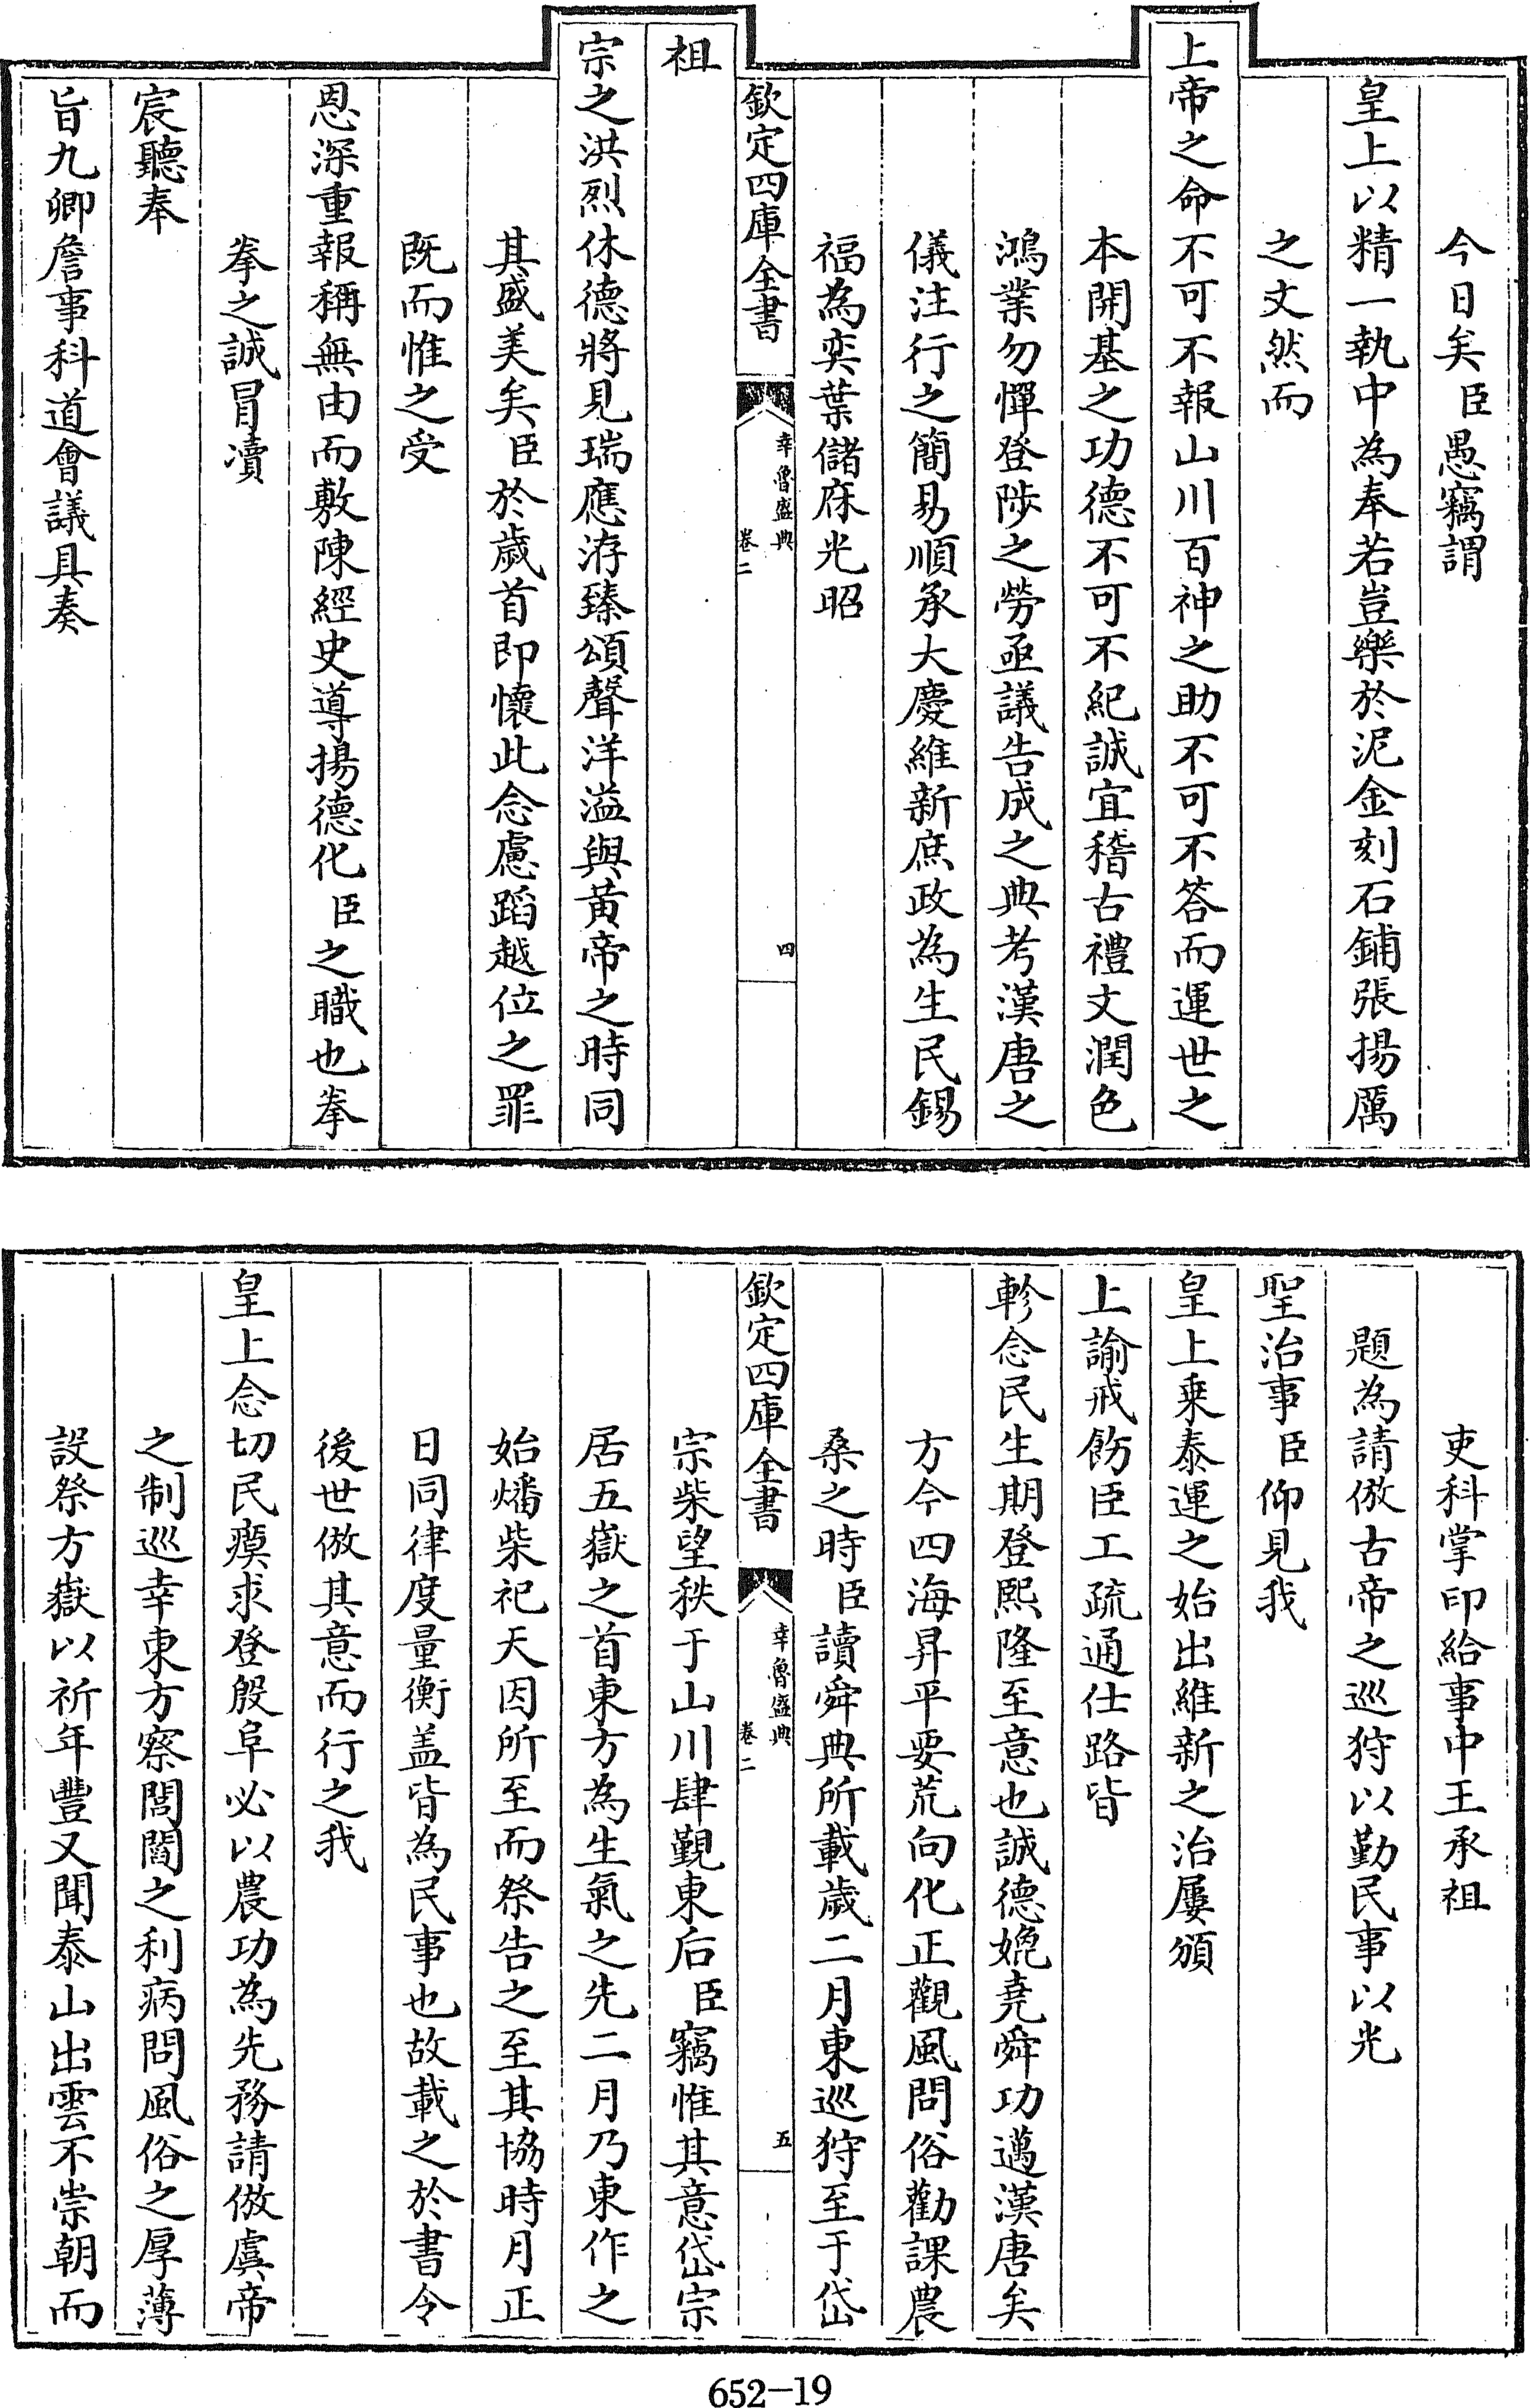 今日矣臣愚竊謂
皇上以精一執中為奉若豈樂於泥金刻石鋪張揚厲
之文然而
上帝之命不可不報山川百神之助不可不答而運世之
本開基之功德不可不紀誠宜稽古禮文潤色
鴻業勿憚登陟之勞亟議告成之典考漢唐之
儀注行之簡易順承大慶維新庶政為生民錫
福為奕葉儲庥光昭
欽定四庫全書
幸魯盛典
卷二
四
祖
宗之洪烈休德將見瑞應洊臻頌聲洋溢與黃帝之時同
其盛美矣臣於歲首即懷此念慮蹈越位之罪
既而惟之受
恩深重報稱無由而敷陳經史導揚德化臣之職也拳
拳之誠冒瀆
宸聽奉
旨九卿詹事科道會議具奏
吏科掌印給事中王承祖
題為請倣古帝之巡狩以勤民事以光
聖治事臣仰見我
皇上乗泰運之始出維新之治屢頒
上諭戒飭臣工疏通仕路皆
軫念民生期登熙隆至意也誠德媲堯舜功邁漢唐矣
方今四海昇平要荒向化正觀風問俗勸課農
桑之時臣讀舜典所載歲二月東巡狩至于岱
欽定四庫全書
幸魯盛典
卷二
五
宗柴望秩于山川肆覲東后臣竊惟其意岱宗
居五嶽之首東方為生氣之先二月乃東作之
始燔柴祀天因所至而祭告之至其協時月正
日同律度量衡盖皆為民事也故載之於書令
後世倣其意而行之我
皇上念切民瘼求登殷阜必以農功為先務請倣虞帝
之制巡幸東方察閭閻之利病問風俗之厚薄
設祭方嶽以祈年豐又聞泰山出雲不崇朝而
652-19